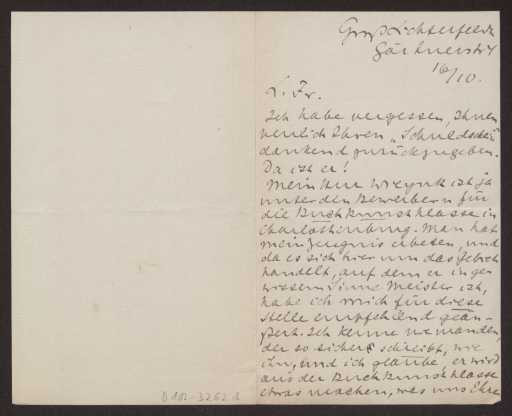 Groß Lichterfelde
Gärtnerstr
16/10.
L. Fr.
Ich habe vergessen, Ihnen
neulich Ihren „Schuldschein"
dankend zurückzugeben.
Da ist er!
Mein Herr ist ja
unter den Bewerbern für
die Buchkunstklasse in
Charlottenburg. Man hat
mein Zeugnis erbeten, und
da es sich hier um das Gebiet
handelt, auf dem er in ge-
wissem Sinne Meister ist,
habe ich mich für diese
Stelle empfehlend geäu-
ßert. Ich kenne niemanden,
der so sicher schreibt, wie
ihn, und ich glaube, er wird
aus der Buchkunstklasse
etwas machen, was uns Ihre